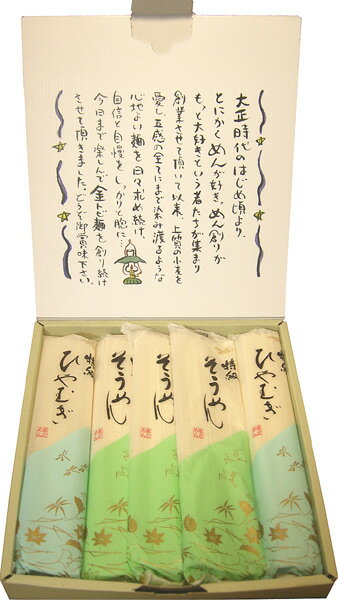 大正時代のはじめ頃より、
とにかくめんが好き、めん創りが
もっと大好きという者たちが集まり
創業させて頂いて以来 上質の小麦を
愛し、五感の全てにまで染み渡るような
心地よい麺を日々求め続け、
自信と自慢をしっかりと胞に…
今日まで楽しんで金トビ麺を創り続け
させて頂きました。どうぞ御賞味下さい。
特級
ひやむぎ
そうめん
そうめん
特級
そうめん
特級
ひやむぎ